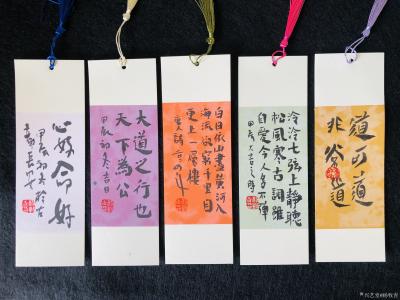 心好命好
大道之行也
天下為公
甲辰初冬吉日
白日依山盡黃河入
海流欲窮千里目
更上一層樓
泠泠七弦上靜聽
松風寒古調雖
自愛今人多不彈
道可道
非常道